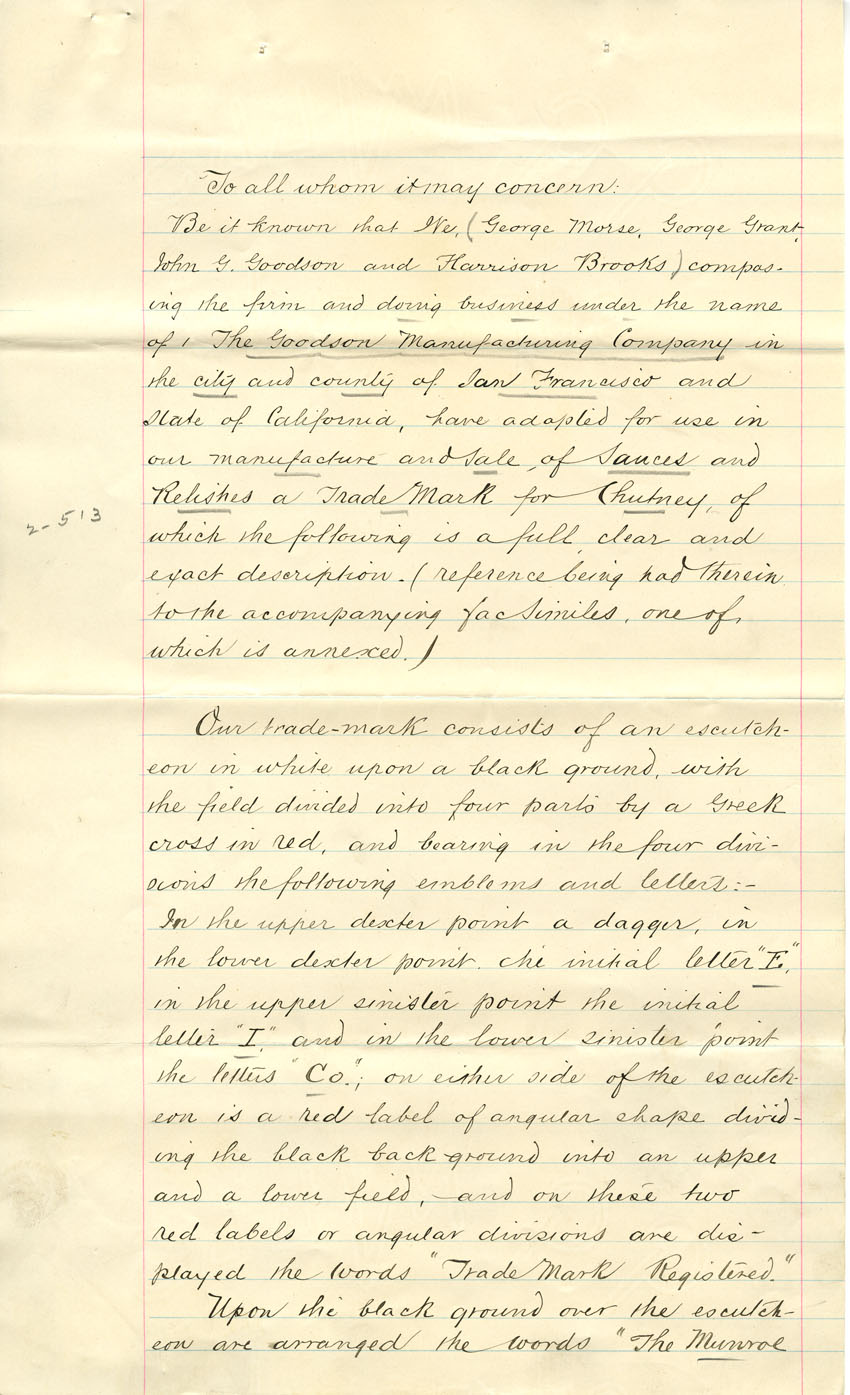 To all whom it may concern:
Be it known that We, (George Morse, George Grant,
John G. Goodson and Harrison Brooks) compos-
ing the firm and doing business under the name
of The Goodson Manufacturing Company in
the city and county of San Francisco and
State of California, have adopted for use in
our manufacture and Sale of Sauces and
Relishes a Trade Mark for Chutney, of
2-513
which the following is a full, clear and
exact description. (reference being had therein
to the accompanying facsimiles, one of,
which is annexed.)
Our trade-mark consists of an escutch-
eon in white upon a black ground, with
the field divided into four parts by a Greek
cross in red, and bearing in the four divi-
sions the following emblems and letters:-
In the upper dexter point a dagger, in
the lower dexter point. the initial letter "E",
in the upper sinister point the initial
letter "I", and in the lower sinister point
the letters "Co."; on either side of the escutch-
eon is a red label of angular shape divid-
ing the black back-ground into an upper
and a lower field, - and on these two
red labels or angular divisions are dis-
played the words "Trade Mark Registered."
Upon the black ground over the escutch-
eon are arranged the words "The Munroe